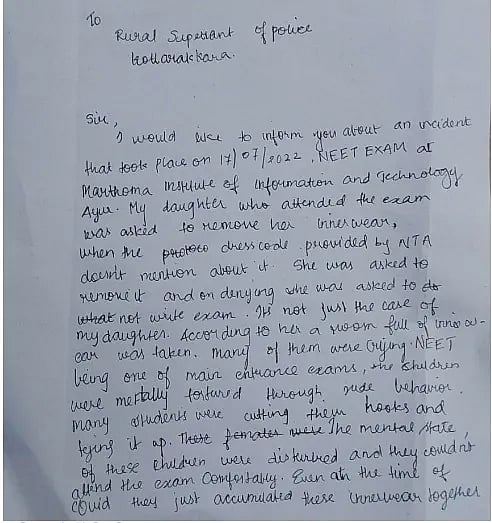 To
Rural Supetiant of police
kottarakkara.
Sir,
I would like to inform you about an incident
that took place on 17/07/2022, NEET EXAM at
Marthoma Institute of Information and Technology
Ayur. My daughter who attended the exam
was asked to remove her innerwear,
when the protoco dresscode provided by NTA
doesn't mention about it. She was asked to
remove it and on denying she was asked to do
what not write exam. Its not just the case of
my daughter. According to her a room full of inner w-
ear was taken. Many of them were Crying. NEET
being one of main entrance exams, the children
were mentally tortured through rude behavior.
Many students were cutting them hooks and
tying it up. These females were The mental state,
of these children were disturbed and they couldn't
attend the exam Comfortably. Even at the time of
covid they just accumulated these innerwear together